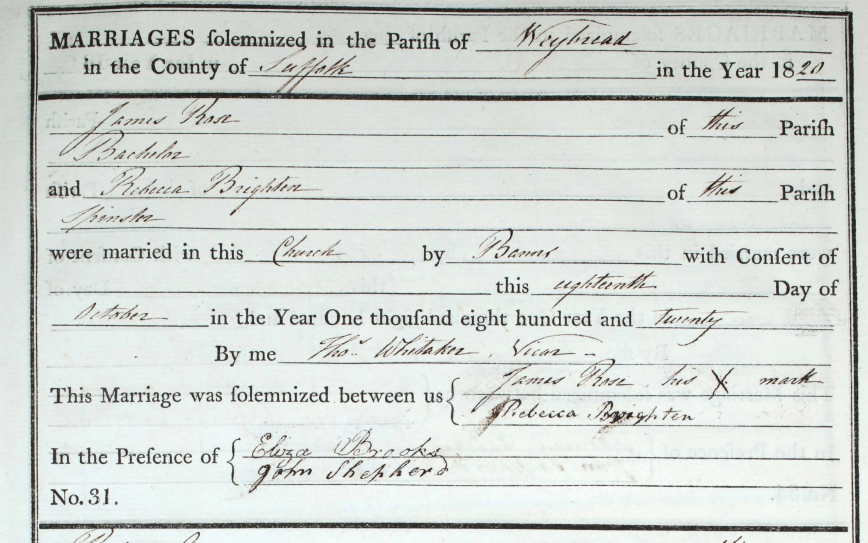 MARRIAGES ſolemnized in the Pariſh of Weybread
in the County of Suffolk in the Year 1820
James Rose of this Pariſh
Bachelor
and Rebecca Brighten of this Pariſh
Spinster
were married in this Church by Banns with Conſent of
this eighteenth Day of
October in the Year One thouſand eight hundred and twenty
By me Thos. Whitaker, Vicar
This Marriage was ſolemnized between us { James Rose his X mark
Rebecca Brighten
In the Preſence of { Eliza Brooks
John Shepherd
No. 31.